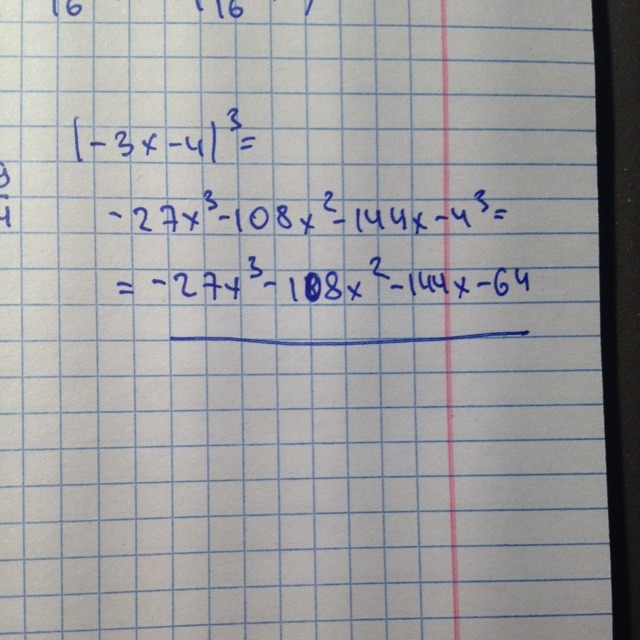 16 116
|-3x-4|³=
3
4
-27x³-108x²-144x-4³=
= -27x³-108x²-144x-64